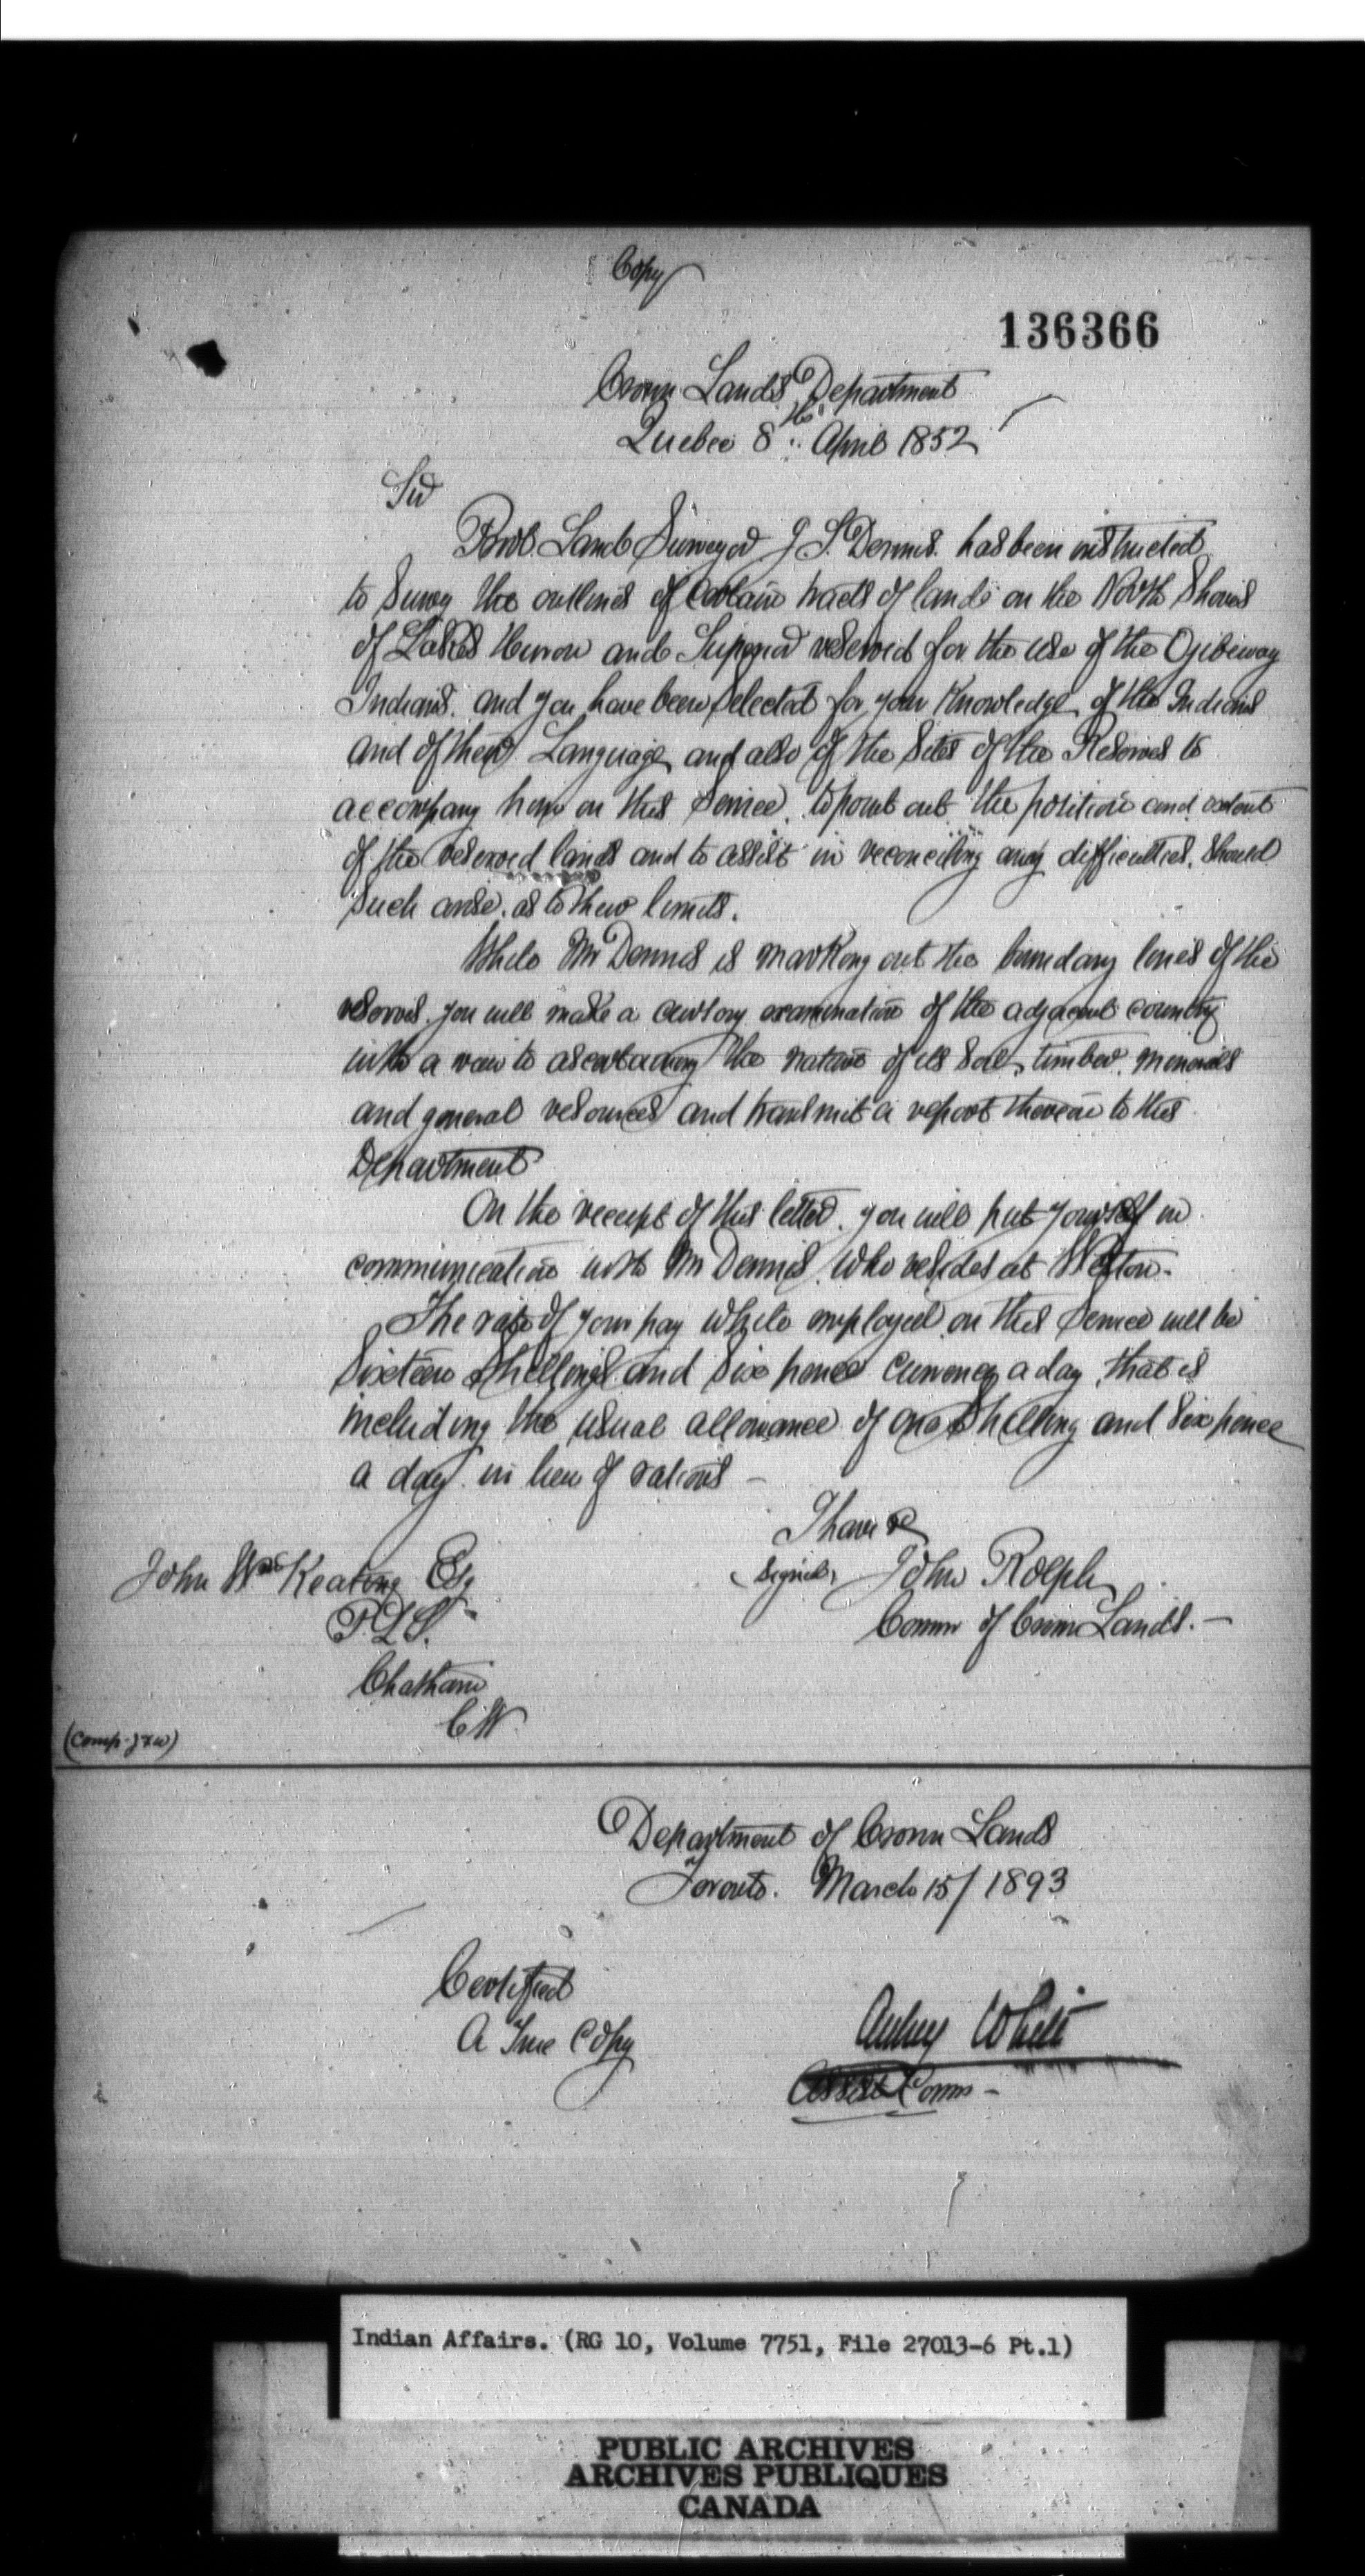 Copy
136366
Crown Lands Department
Quebec 8th April 1852
Sir
Prov. Land Surveyor J. S. Dennis. has been instructed
to survey the outlines of certain tracts of lands on the North Shores
of Lakes Huron and Superior reserved for the use of the Ojibeway
Indians. and you have been selected for your Knowledge of the Indians
and of their Language, and also of the Sites of the Reserves to
accompany him on this Service, to point out the position and extent
of the reserved lands and to assist in reconciling any difficulties, should
such arise. as to their limits.
While Mr Dennis is marking out the boundary lines of the
reserves. you will make a cursory examination of the adjacent country
with a view to ascertaining the nature of its soil, timber, minerals
and general resources and transmit a report thereon to this
Department
On the receipt of this letter. you will put yourself in
communication with Mr Dennis, who resides at Weston.
The rate of your pay while employed on this Service will be
Sixteen Shillings and Six pence Currency a day, that is
including the usual allowance of one Shilling and Six pence
a day in lieu of rations —
I have &c
(Signed) John Rolph
Comr of Crown Lands. —
John Wm Keating Esq
P.L.S.
Chatham
C.W.
(Comp. J & W)
Department of Crown Lands
Toronto. March 15/ 1893
Certified
A True Copy
Aubrey White
Assist Comr —
Indian Affairs. (RG 10, Volume 7751, File 27013-6 Pt.1)
PUBLIC ARCHIVES
ARCHIVES PUBLIQUES
CANADA